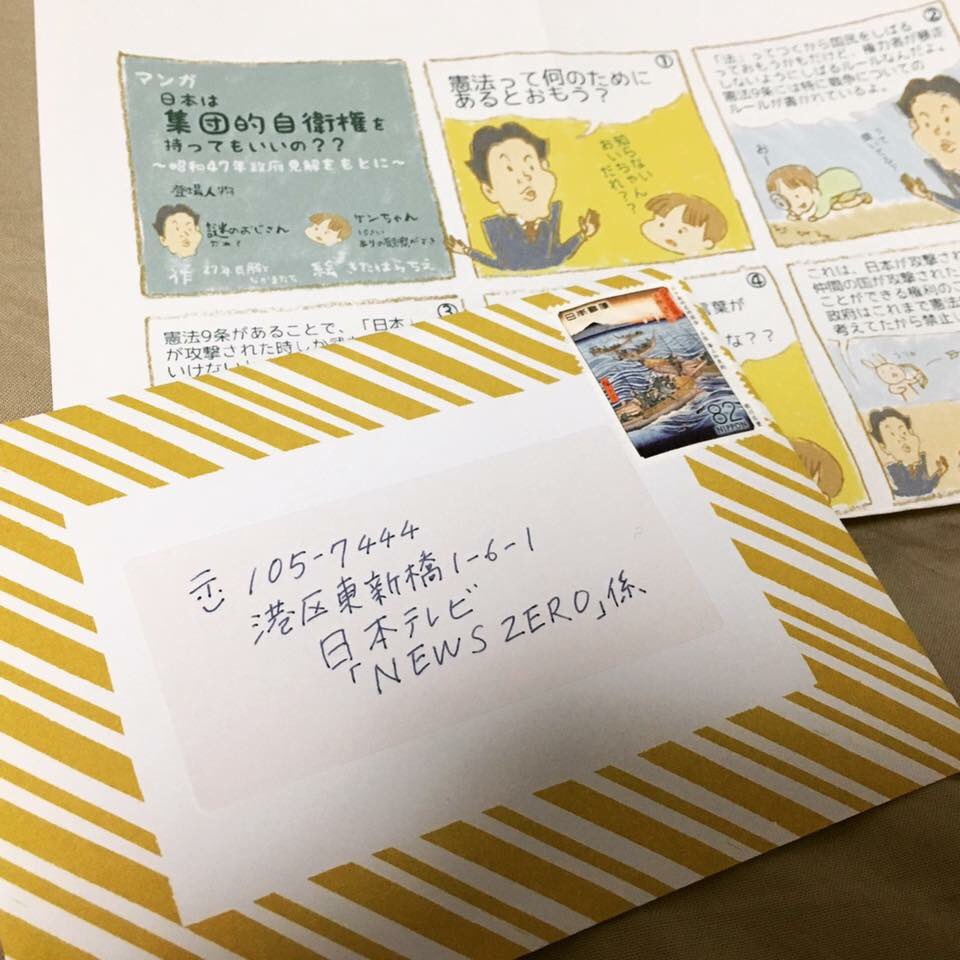 マンガ
日本は
集団的自衛権を
持ってもいいの??
～昭和47年政府見解をもとに～
登場人物
謎のおじさん
ケンちゃん
作
絵 きたはらちえ
①
憲法って何のために
あるとおもう?
知らない
おいちゃん
だれ??
②
「法」ってつくから国民をしばる
っておもうかもだけど、権力者が暴走
しないようにしばるルールなんだよ。
憲法9条には特に戦争についての
ルールが書かれているよ。
おー
③
憲法9条があることで、「日本
が攻撃された時しか
いけない
④
言葉が
な??
これは、日本が攻撃され
仲間の国が攻撃された
ことができる権利のこ
政府はこれまで憲法
考えてたから禁止
日本郵便
82
NIPPON
〒105-7444
港区東新橋1-6-1
日本テレビ
「NEWS ZERO」係